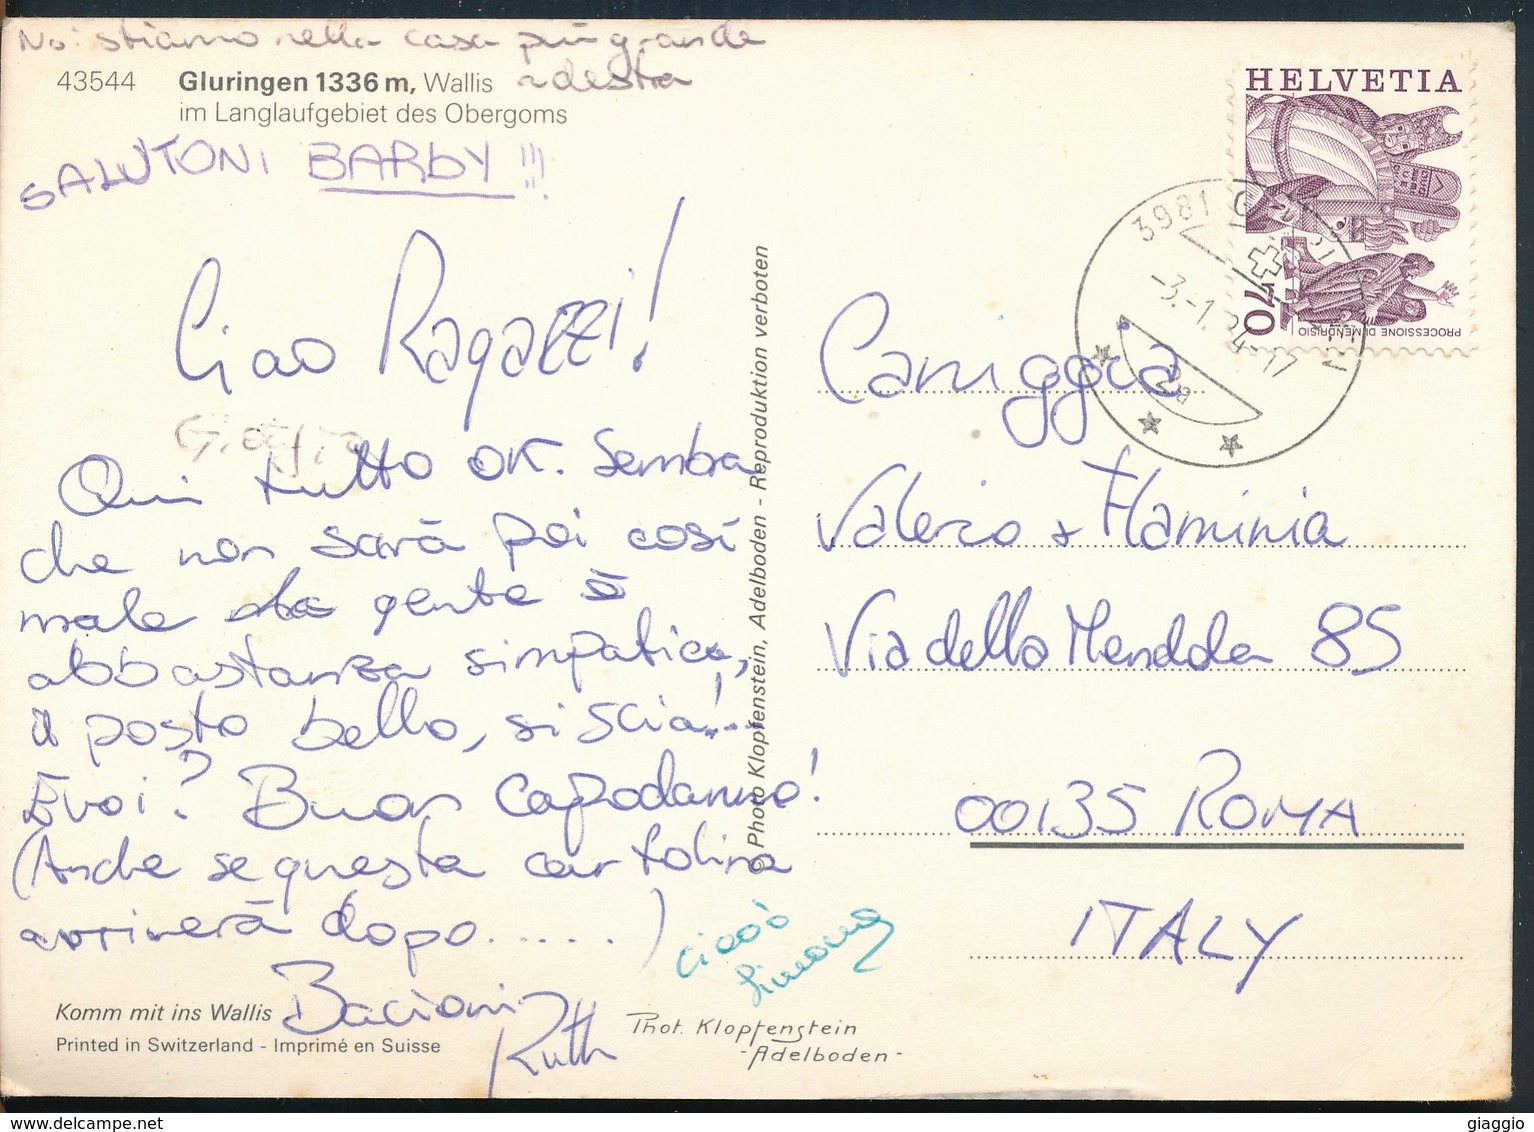 Noi stiamo nella casa più grande
a destra
43544 Gluringen 1336 m, Wallis
im Langlaufgebiet des Obergoms
SALUTONI BARBY!!!
Ciao Ragazzi!
Giorgia
Qui tutto OK. Sembra
che non sarà poi così
male la gente è
abbastanza simpatica,
il posto bello, si scia!..
E voi? Buon Capodanno!
(Anche se questa cartolina
arriverà dopo......)
Bacioni
Ruth
ciaoo
Simona
Komm mit ins Wallis
Printed in Switzerland - Imprimé en Suisse
Phot. Klopfenstein
- Adelboden -
© Photo Klopfenstein, Adelboden - Reproduktion verboten
HELVETIA
70
PROCESSIONE DI MENDRISIO
3981
-3.-1.84-17
2a
Caniggia
Valerio + Flaminia
Via della Mendola 85
00135 ROMA
ITALY
giaggio